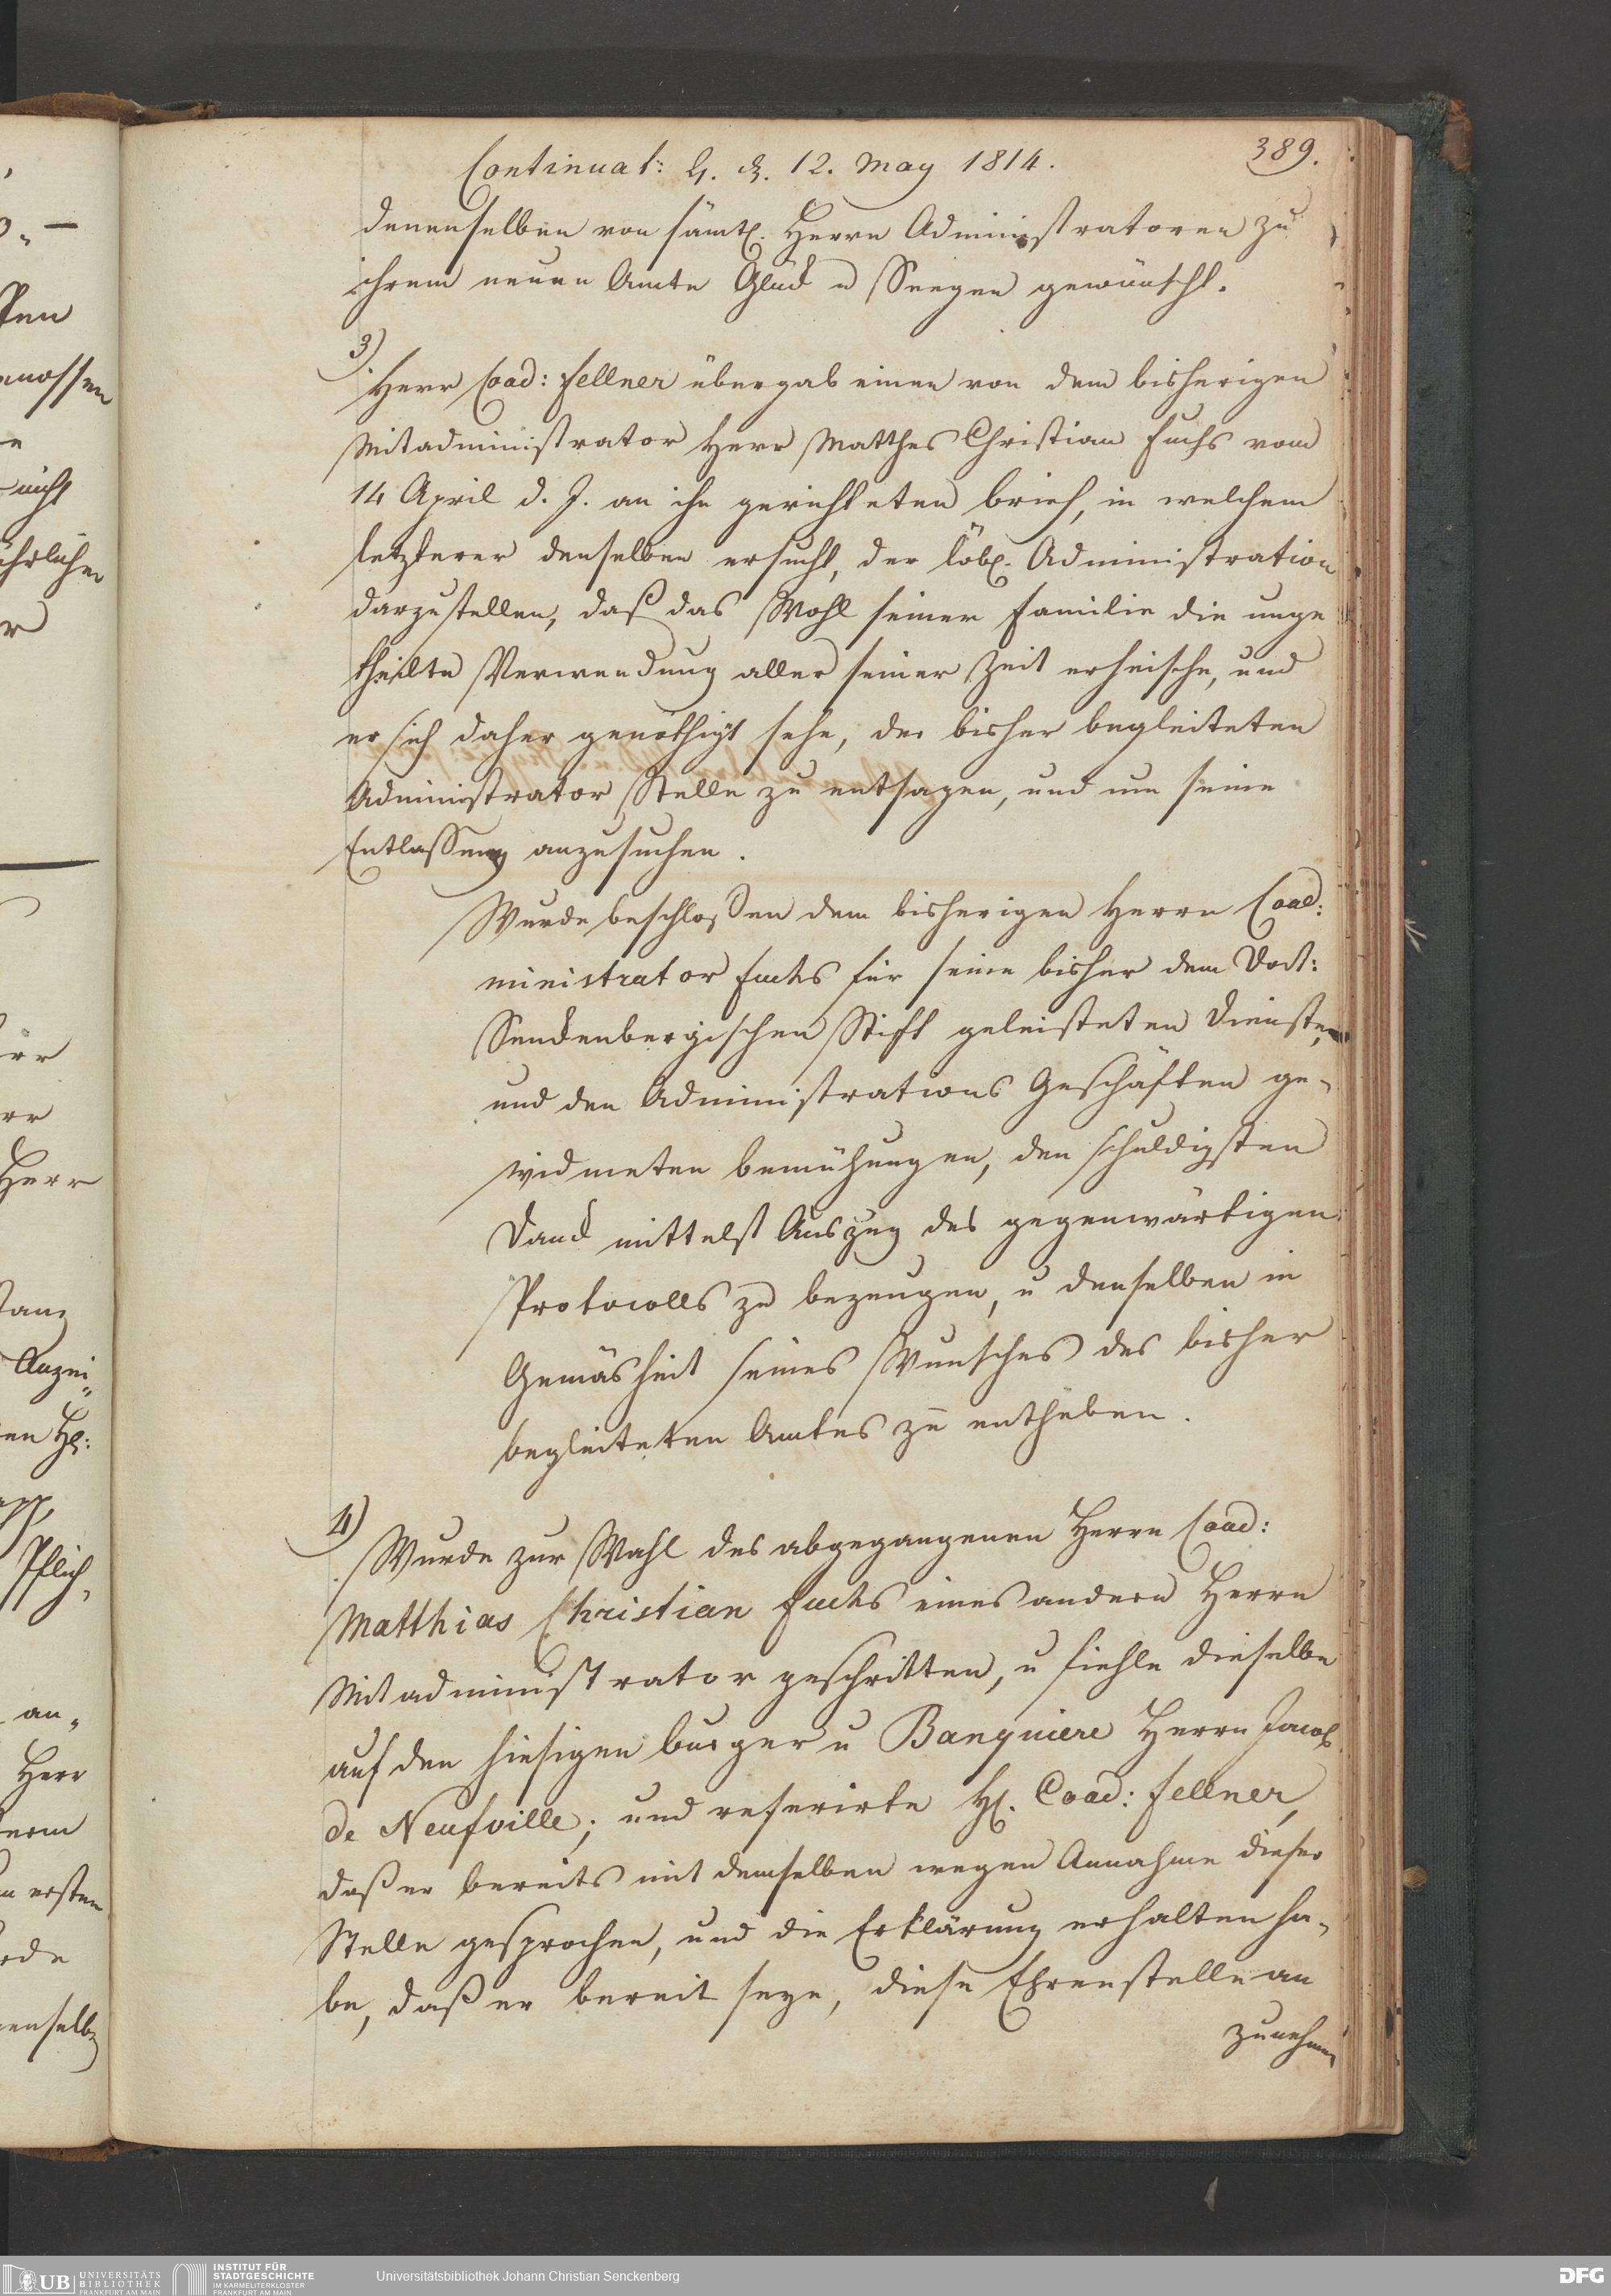 389.
Continuat: 12. May 1814.
denenselben von sämtl. Herrn Administratoren zu
ihrem neuen Amte Glück u Seegen gewünscht.
3)
Herr Coad: Fellner übergab einen von dem bisherigen
Mitadministrator Herr Matthes Christian Fuchs vom
14 April d. J. an ihn gerichteten Brief, in welchem
letzterer denselben ersucht, der löbl. Administration
darzustellen, daß das Wohl seiner Familie die unge
theilte Verwendung aller seiner Zeit erheische, und
er sich daher genöthigt sehe, der bisher begleiteten
Administrator Stelle zu entsagen, und um seine
Entlassung anzusuchen.
Wurde beschloßen dem bisherigen Herrn Coad:
ministrator Fuchs für seine bisher dem Doct:
Senckenbergischen Stift geleisteten Dienste,
und den Administrations Geschäften ge-
widmeten Bemühungen, den schuldigsten
Danck mittelst Auszug des gegenwärtigen
Protocolls zu bezeugen, u denselben in
Gemäsheit seines Wunsches des bisher
begleiteten Amtes zu entheben.
4)
Wurde zur Wahl des abgegangenen Herrn Coad:
Matthias Christian Fuchs eines andern Herrn
Mitadministrator geschritten, u fiehle dieselbe
auf den hiesigen Burger u Banquiere Herrn Jacob
de Neufville; und referirte Hl. Coad: Fellner,
daß er bereits mit demselben wegen Annahme dieser
Stelle gesprochen, und die Erklärung erhalten ha-
be, daß er bereit seye, diese Ehrenstelle an
zunehmen
nicht
Herr
Anzei
Pflich
an-
Herr
ersten
UB
UNIVERSITÄTS
BIBLIOTHEK
FRANKFURT AM MAIN
INSTITUT FÜR
STADTGESCHICHTE
IM KARMELITERKLOSTER
FRANKFURT AM MAIN
Universitätsbibliothek Johann Christian Senckenberg
DFG